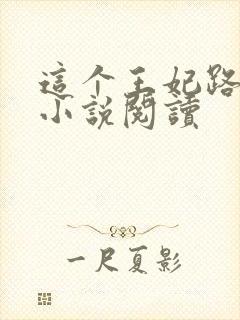 這个王妃路
小說閱讀
一尺夏影